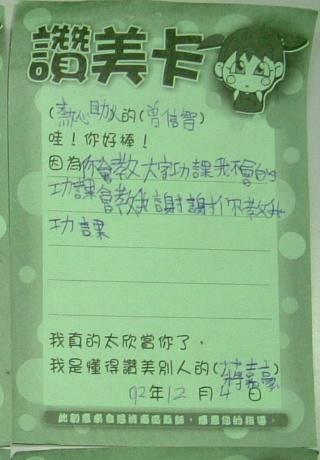 讚美卡
(熱心助人的(曾信智)
哇！你好棒！
因為你會教大家功課我不會的
功課會教我謝謝你教我
功課
我真的太欣賞你了，
我是懂得讚美別人的(蔣嘉豪)
92年12月4日